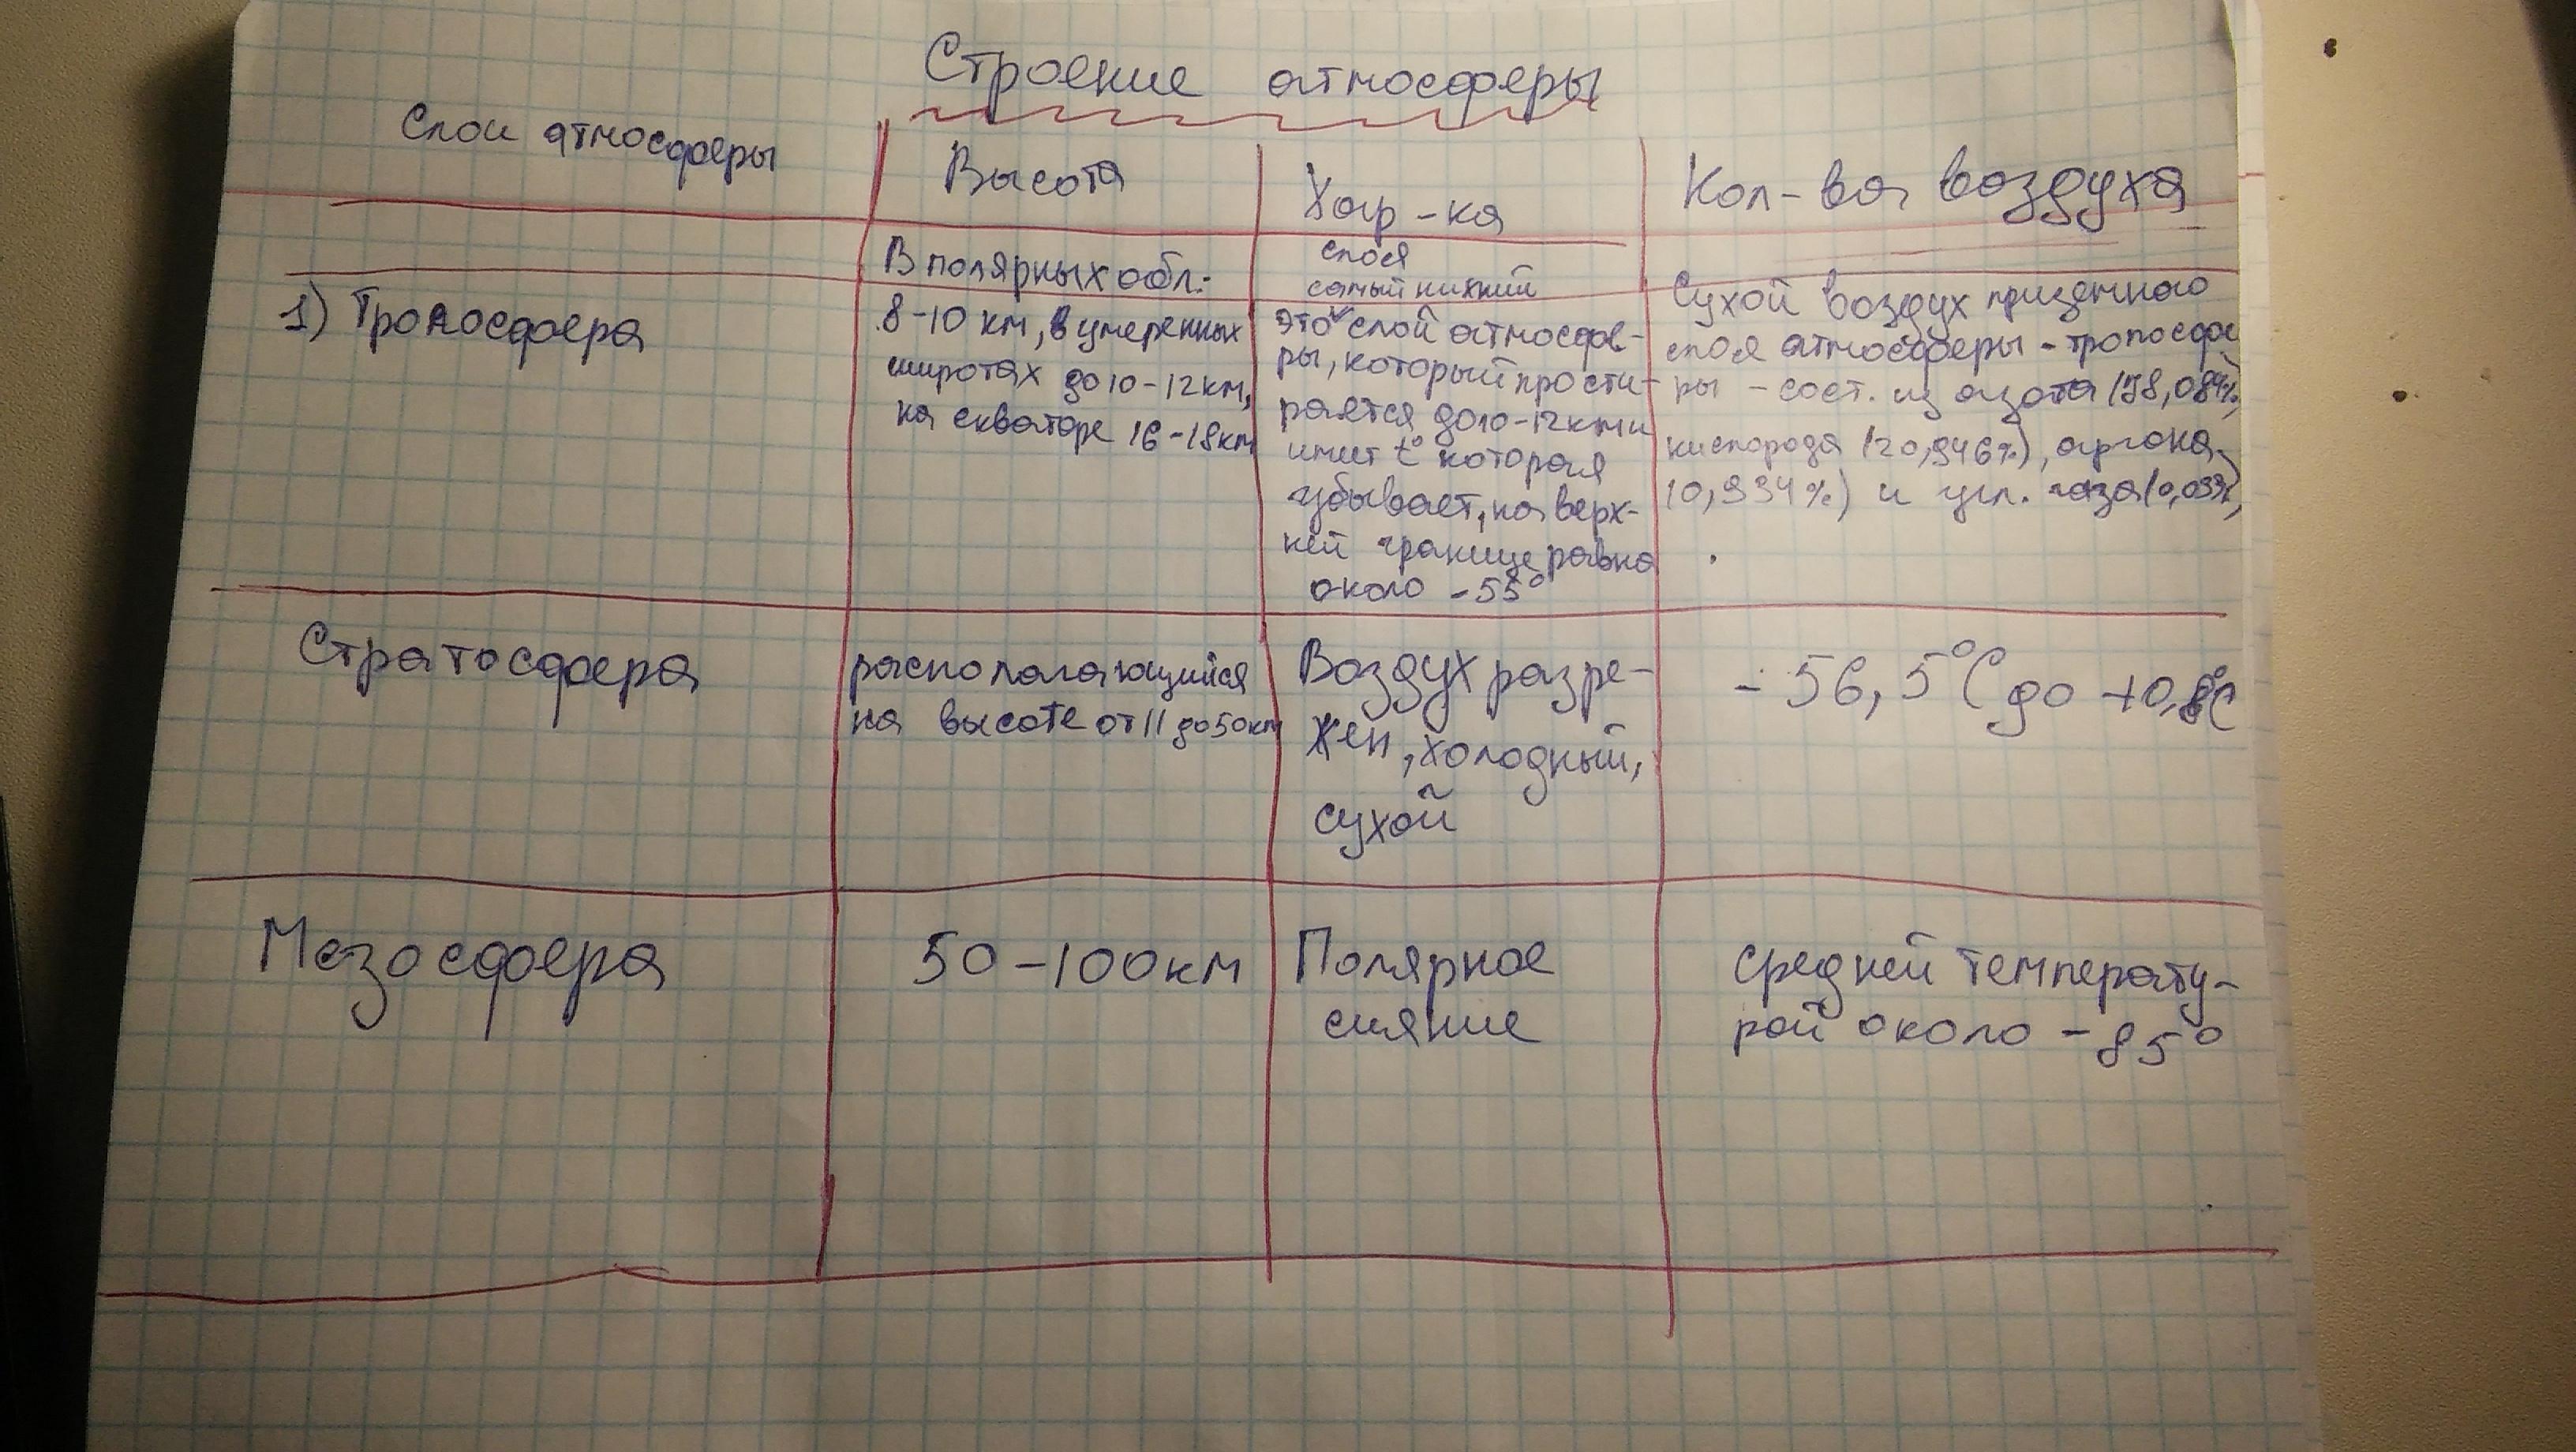 Строение атмосферы
Слои атмосферы
Высота
Хар-ка
слоя
Кол-во воздуха
1) Тропосфера
В полярных обл.:
8-10 км, в умеренных
широтах до 10-12 км,
на екваторе 16-18км
самый нижний
это слой атмосфе-
ры, который прости-
рается до 10-12 км и
имет t° которая
убывает, на верх-
ней границе равна
около -55°
Сухой воздух приземного
слоя атмосферы - тропосфе
ры - сост. из азота (78,084%,
кислорода (20,946%), аргона
(0,934%) и угл. газа (0,033%)
Стратосфера
располагающийся
на высоте от 11 до 50 км
Воздух разре-
жен, холодный,
сухой
-56,5°C до +0,8°C
Мезосфера
50-100км
Полярное
сияние
средней температу-
рой около -85°